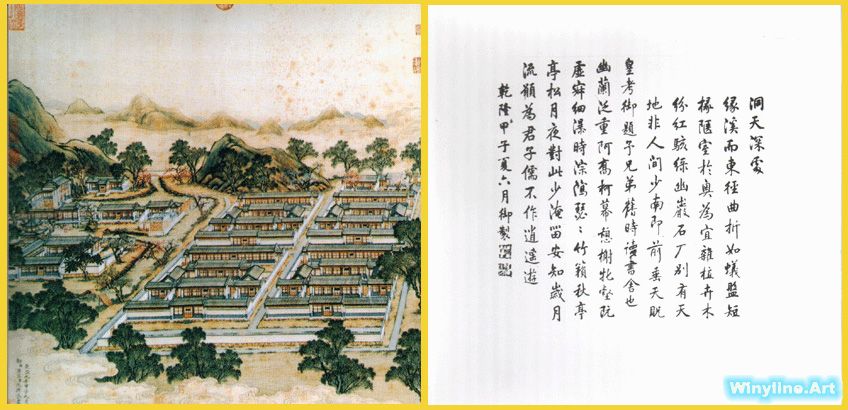 洞天深處
緣溪而東徑曲折如蟻盤短
椽陋室於奧為宜雜植卉木
紛紅駭綠幽巖石厂別有天
地非人間少南即前垂天貺
皇考御題予兄弟舊時讀書舍也
幽蘭泛重阿喬柯幕憩榭牝壑既
虛寂細瀑時淙瀉瑟〻竹籟秋亭
亭松月夜對此少淹畱安知歲月
流願為君子儒不作逍遙遊
乾隆甲子夏六月御製
Winyline.Art